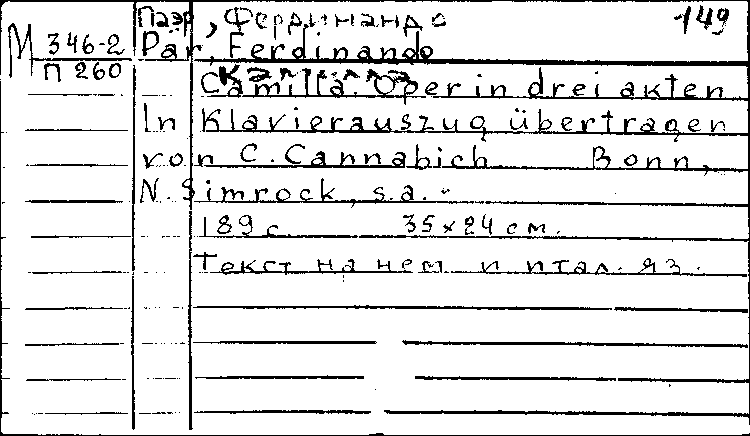 Паэр, Фердинандо 149
М 346-2 Pär, Ferdinando
П 260
Camilla. Oper in drei akten
In Klavierauszug übertragen
von C. Cannabich Bonn,
N. Simrock, s.a. -
189 с. 35x24 см.
Текст на нем и итал. яз.